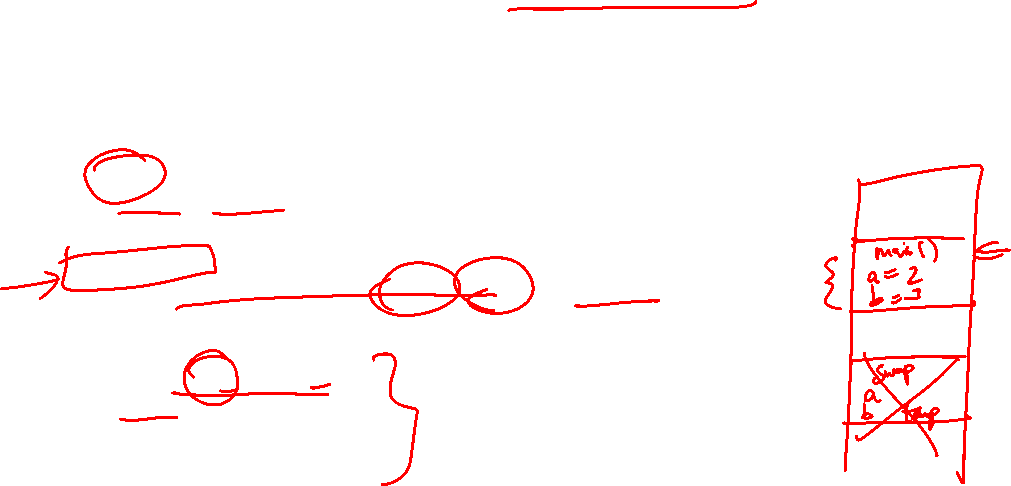 main()
a = 2
b = 3
Swap
a
b temp